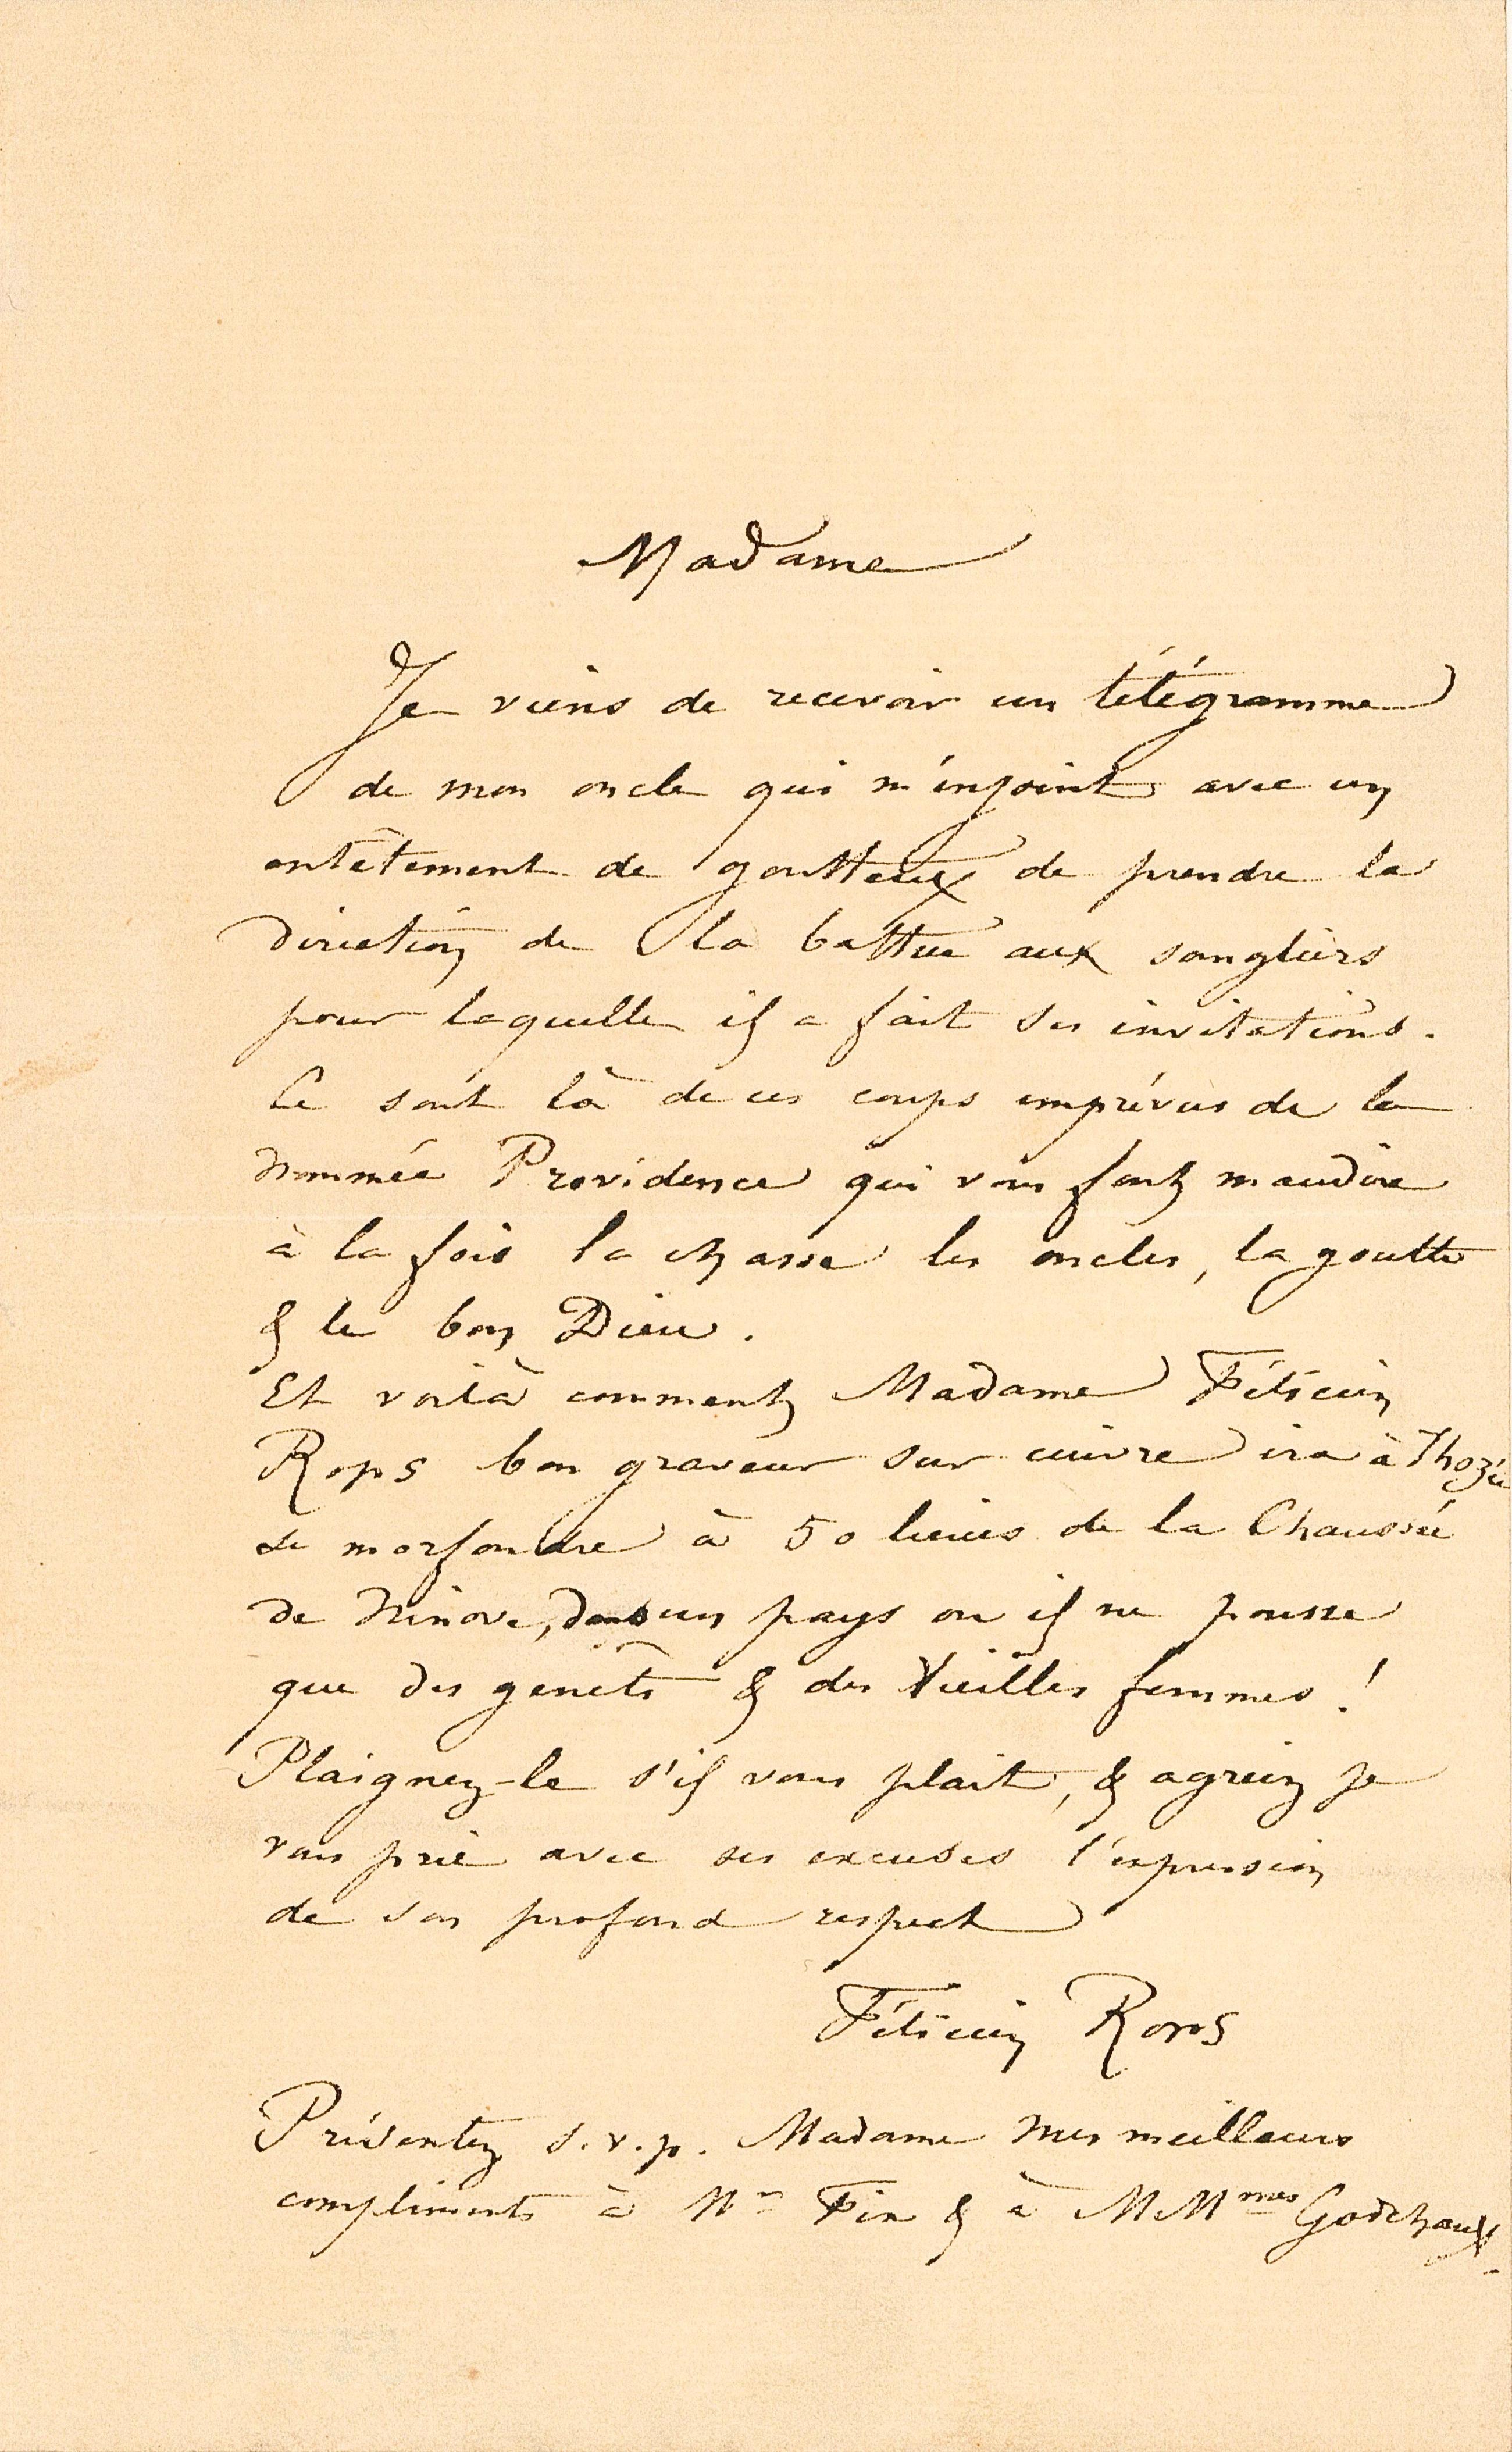 Madame
Je viens de recevoir un télégramme
de mon oncle qui m'enjoint avec un
entêtement de goutteux de prendre la
direction de la battue aux sangliers
pour laquelle il a fait ses invitations.
Ce sont là de ces coups imprévus de la
nommée Providence qui vous font maudire
à la fois la chasse les oncles, la goutte
& le bon Dieu.
Et voilà comment Madame Félicien
Rops bon graveur sur cuivre ira à Thozée
se morfondre à 50 lieues de la Chaussée
de Ninove, dans un pays ou il ne pousse
que des genêts & des vieilles femmes !
Plaignez-le s'il vous plait, & agréez je
vous prie avec ses excuses l'expression
de son profond respect
Félicien Rops
Présentez s.v.p. Madame mes meilleurs
compliments à Mr Fix & à MMmes Godchaux.